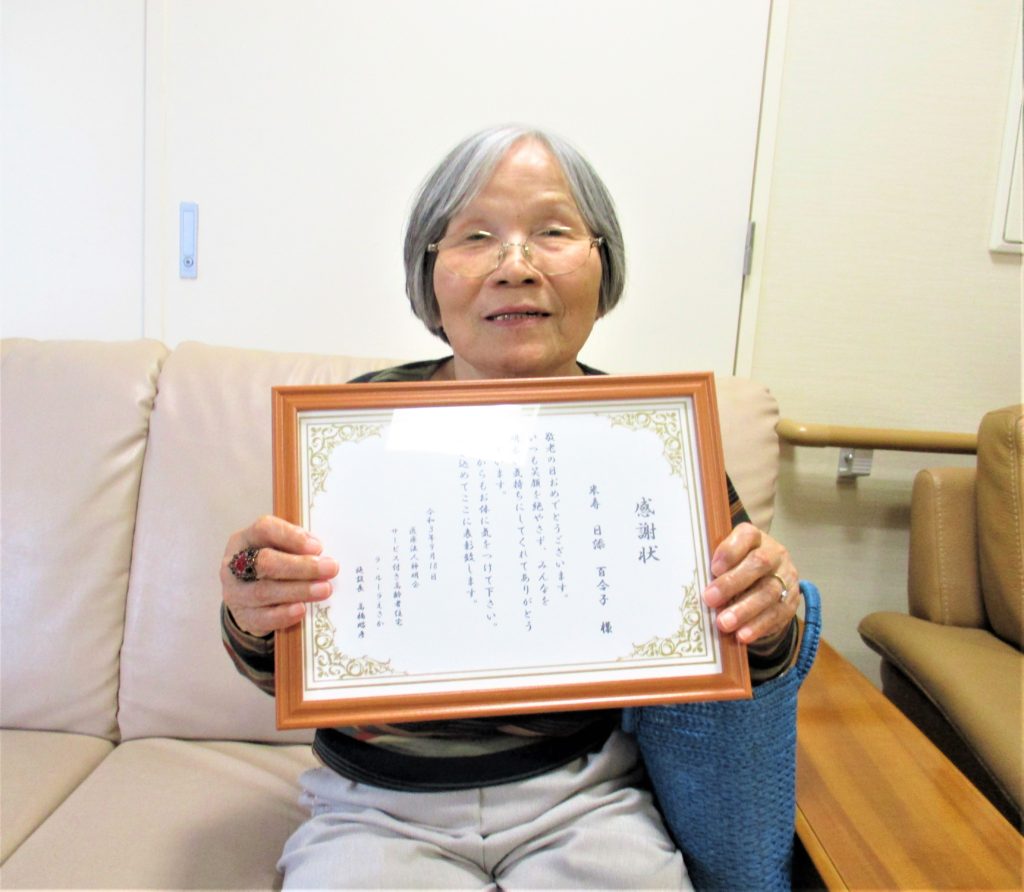 感謝状
米寿 日添 百合子 様
敬老の日おめでとうございます。
いつも笑顔を絶やさず、みんなを
気持ちにしてくれてありがとう
います。
からもお体に気をつけて下さい。
込めてここに表彰致します。
令和3年9月18日
医療法人 明会
サービス付き高齢者住宅
ラ・ルーラえさか
施設長 高橋